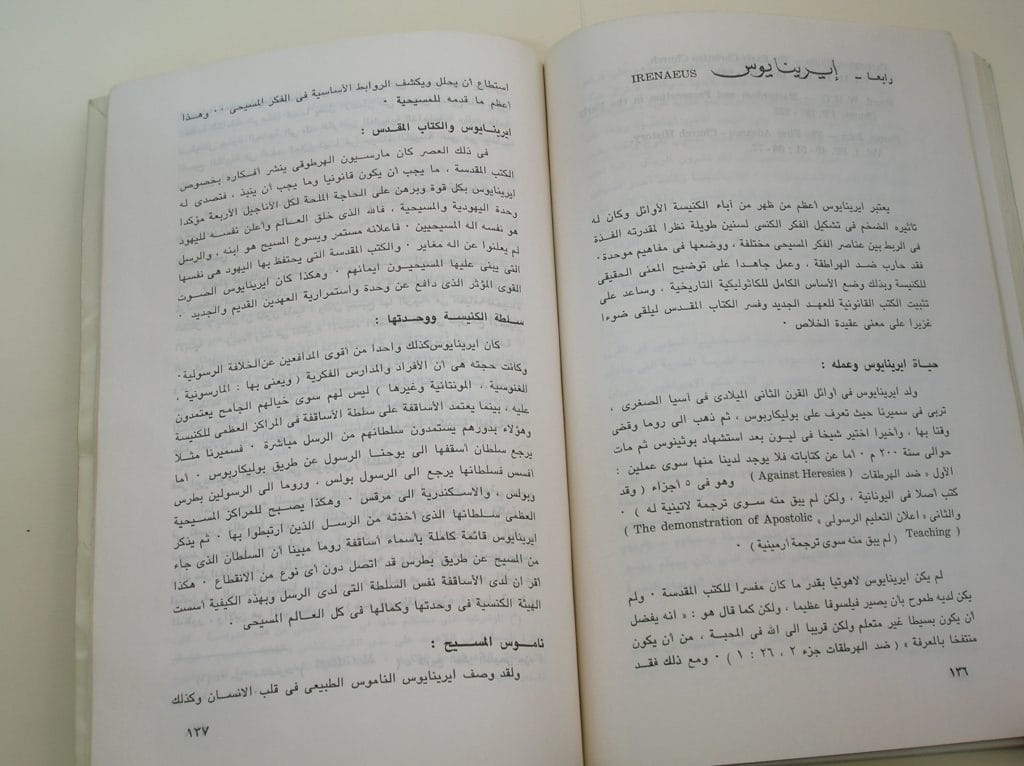 رابعا – إيرينايوس IRENAEUS
يعتبر ايرينايوس أعظم من ظهر من آباء الكنيسة الأوائل وكان له
تأثيره الضخم فى تشكيل الفكر الكنسى لسنين طويلة نظرا لمقدرته الفذة
فى الربط بين عناصر الفكر المسيحى مختلفة ، ووضعها فى مفاهيم موحدة ٠
فقد حارب ضد الهراطقة ، وعمل جاهدا على توضيح المعنى الحقيقى
للكنيسة وبذلك وضع الأساس الكامل للكاثوليكية التاريخية ، وساعد على
تثبيت الكتب القانونية للعهد الجديد وفسر الكتاب المقدس ليلقى ضوءا
غزيرا على معنى عقيدة الخلاص ٠
حياة ايرينايوس وعمله :
ولد ايرينايوس فى أوائل القرن الثانى الميلادى فى آسيا الصغرى ،
تربى فى سميرنا حيث تعرف على بوليكاربوس ، ثم ذهب الى روما وقضى
وقتا بها ، وأخيرا اختير شيخا فى ليون بعد استشهاد بوثينوس ثم مات
حوالى سنة ٢٠٠ م ٠ اما عن كتاباته فلا يوجد لدينا منها سوى عملين :
الأول « ضد الهرطقات ( Against Heresies ) وهو فى ٥ أجزاء ( وقد
كتب اصلا فى اليونانية ، ولكن لم يبق منه سوى ترجمة لاتينية له ) ٠
والثانى « اعلان التعليم الرسولى » The demonstration of Apostolic )
( Teaching ( لم يبق منه سوى ترجمة أرمينية ) ٠
لم يكن ايرينايوس لاهوتيا بقدر ما كان مفسرا للكتب المقدسة ٠ ولم
يكن لديه طموح بأن يصير فيلسوفا عظيما ، ولكن كما قال هو : « انه يفضل
أن يكون بسيطا غير متعلم ولكن قريبا الى الله فى المحبة ، من أن يكون
منتفخا بالعرفة » ( ضد الهرطقات جزء ٢ ، ٢٦ : ١ ) ٠ ومع ذلك فقد
١٣٦
استطاع أن يحلل ويكشف الروابط الأساسية فى الفكر المسيحى ٠٠ وهذا
أعظم ما قدمه للمسيحية ٠
ايرينايوس والكتاب المقدس :
فى ذلك العصر كان مارسيون الهرطوقى ينشر أفسكاره بخصوص
الكتب المقدسة ، ما يجب أن يكون قانونيا وما يجب أن ينبذ ، فتصدى له
ايرينايوس بكل قوة وبرهن على الحاجة الملحة لكل الأناجيل الأربعة مؤكدا
وحدة اليهودية والمسيحية ، فالله الذى خلق العالم وأعلن نفسه لليهود
هو نفسه اله المسيحيين ٠ فاعلانه مستمر ويسوع المسيح هو ابنه ، والرسل
لم يعلنوا عن اله مغاير ٠ والكتب المقدسة التى يحتفظ بها اليهود هى نفسها
التى يبنى عليها المسيحيون ايمانهم ٠ وهكذا كان ايرينايوس الصوت
القوى المؤثر الذى دافع عن وحدة واستمرارية العهدين القديم والجديد ٠
سلطة الكنيسة ووحدتها :
كان ايرينايوس كذلك واحدا من أقوى المدافعين عن الخلافة الرسولية٠
وكانت حجته هى أن الأفراد والمدارس الفكرية ( ويعنى بها : المارسونية ،
الغنوسية ، المونتانية وغيرها ) ليس لهم سوى خيالهم الجامح يعتمدون
عليه ، بينما يعتمد الأساقفة على سلطة الأساقفة فى المراكز العظمى للكنيسة
وهؤلاء بدورهم يستمدون سلطانهم من الرسل مباشرة ٠ فسميرنا مثلا
يرجع سلطان أسقفها الى يوحنا الرسول عن طريق بوليكاربوس ٠ أما
أفسس فسلطانها يرجع الى الرسول بولس ، وروما الى الرسولين بطرس
وبولس ، والاسكندرية الى مرقس ٠ وهكذا يصبح للمراكز المسيحية
العظمى سلطانها الذى أخذته من الرسل الذين ارتبطوا بها ٠ ثم يذكر
ايرينايوس قائمة كاملة بأسماء أساقفة روما مبينا أن السلطان الذى جاء
من المسيح عن طريق بطرس قد اتصل دون أى نوع من الانقطاع ٠ هكذا
أقر أن لدى الأساقفة نفس السلطة التى لدى الرسل وبهذه الكيفية أسست
الهيئة الكنسية فى وحدتها وكمالها فى كل العالم المسيحى ٠
ناموس المسيح :
ولقد وصف ايرينايوس الناموس الطبيعى فى قلب الانسان وكذلك
١٣٧